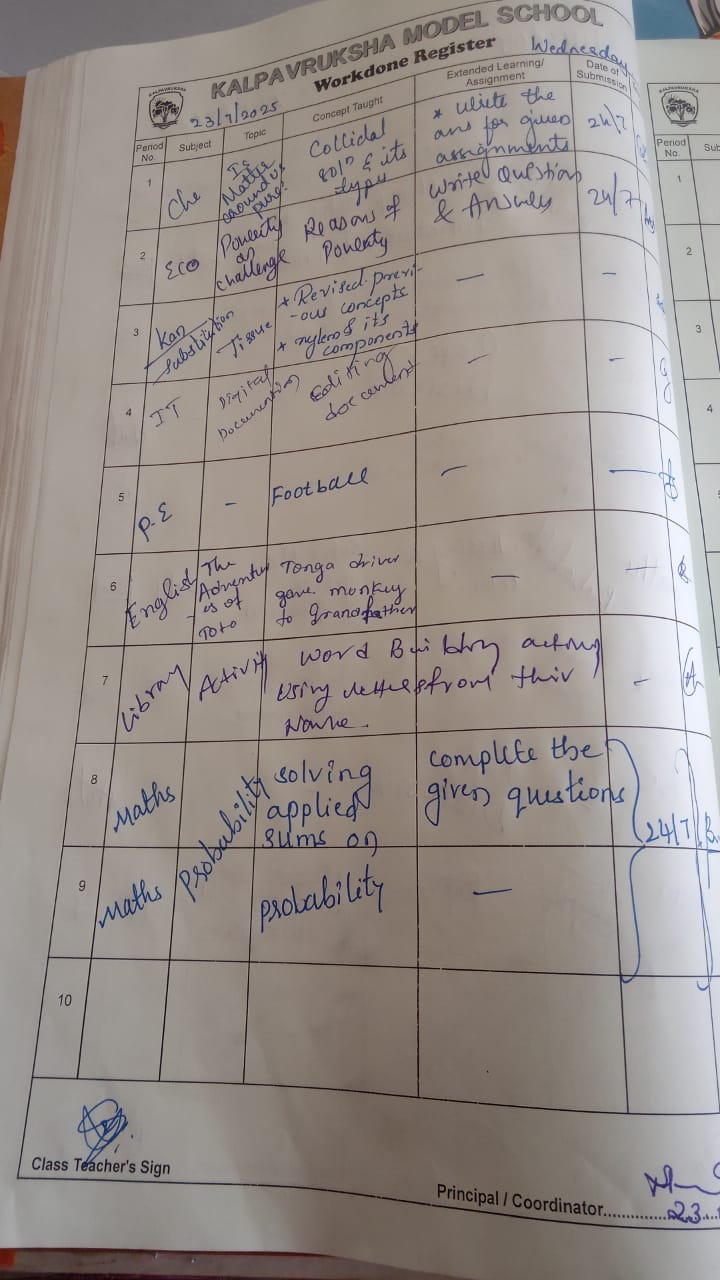 KALPAVRUKSHA MODEL SCHOOL
Workdone Register
Wednesday
KALPAVRUKSHA
23/7/2025
Period No.
Subject
Topic
Concept Taught
Extended Learning/ Assignment
Date of Submission
1
Che
Is
Matter
around us
pure?
Collidal
sol^n & its
type
* Write the
ans for given
assignments
24/7
2
Eco
Poverty
as
challenge
Reasons of
Poverty
Write Question
& Answers
24/7
3
Kan
Substitution
Tissue
* Revised previ-
-ous concepts
* xylem & its
components
—
—
4
IT
Digital
Documentation
Editing
document
—
—
5
P.E
-
Football
—
—
6
English
The
Adventur
-es of
Toto
Tonga driver
gave monkey
to grandfather
—
—
7
Library
Activity
Word Building
using letters from their
Name.
-
8
Maths
Probability
solving
applied
sums on
complete the
given questions
24/7
9
Maths
probability
—
10
Class Teacher's Sign
Principal / Coordinator
23
Period No.
Sub
1
2
3
4